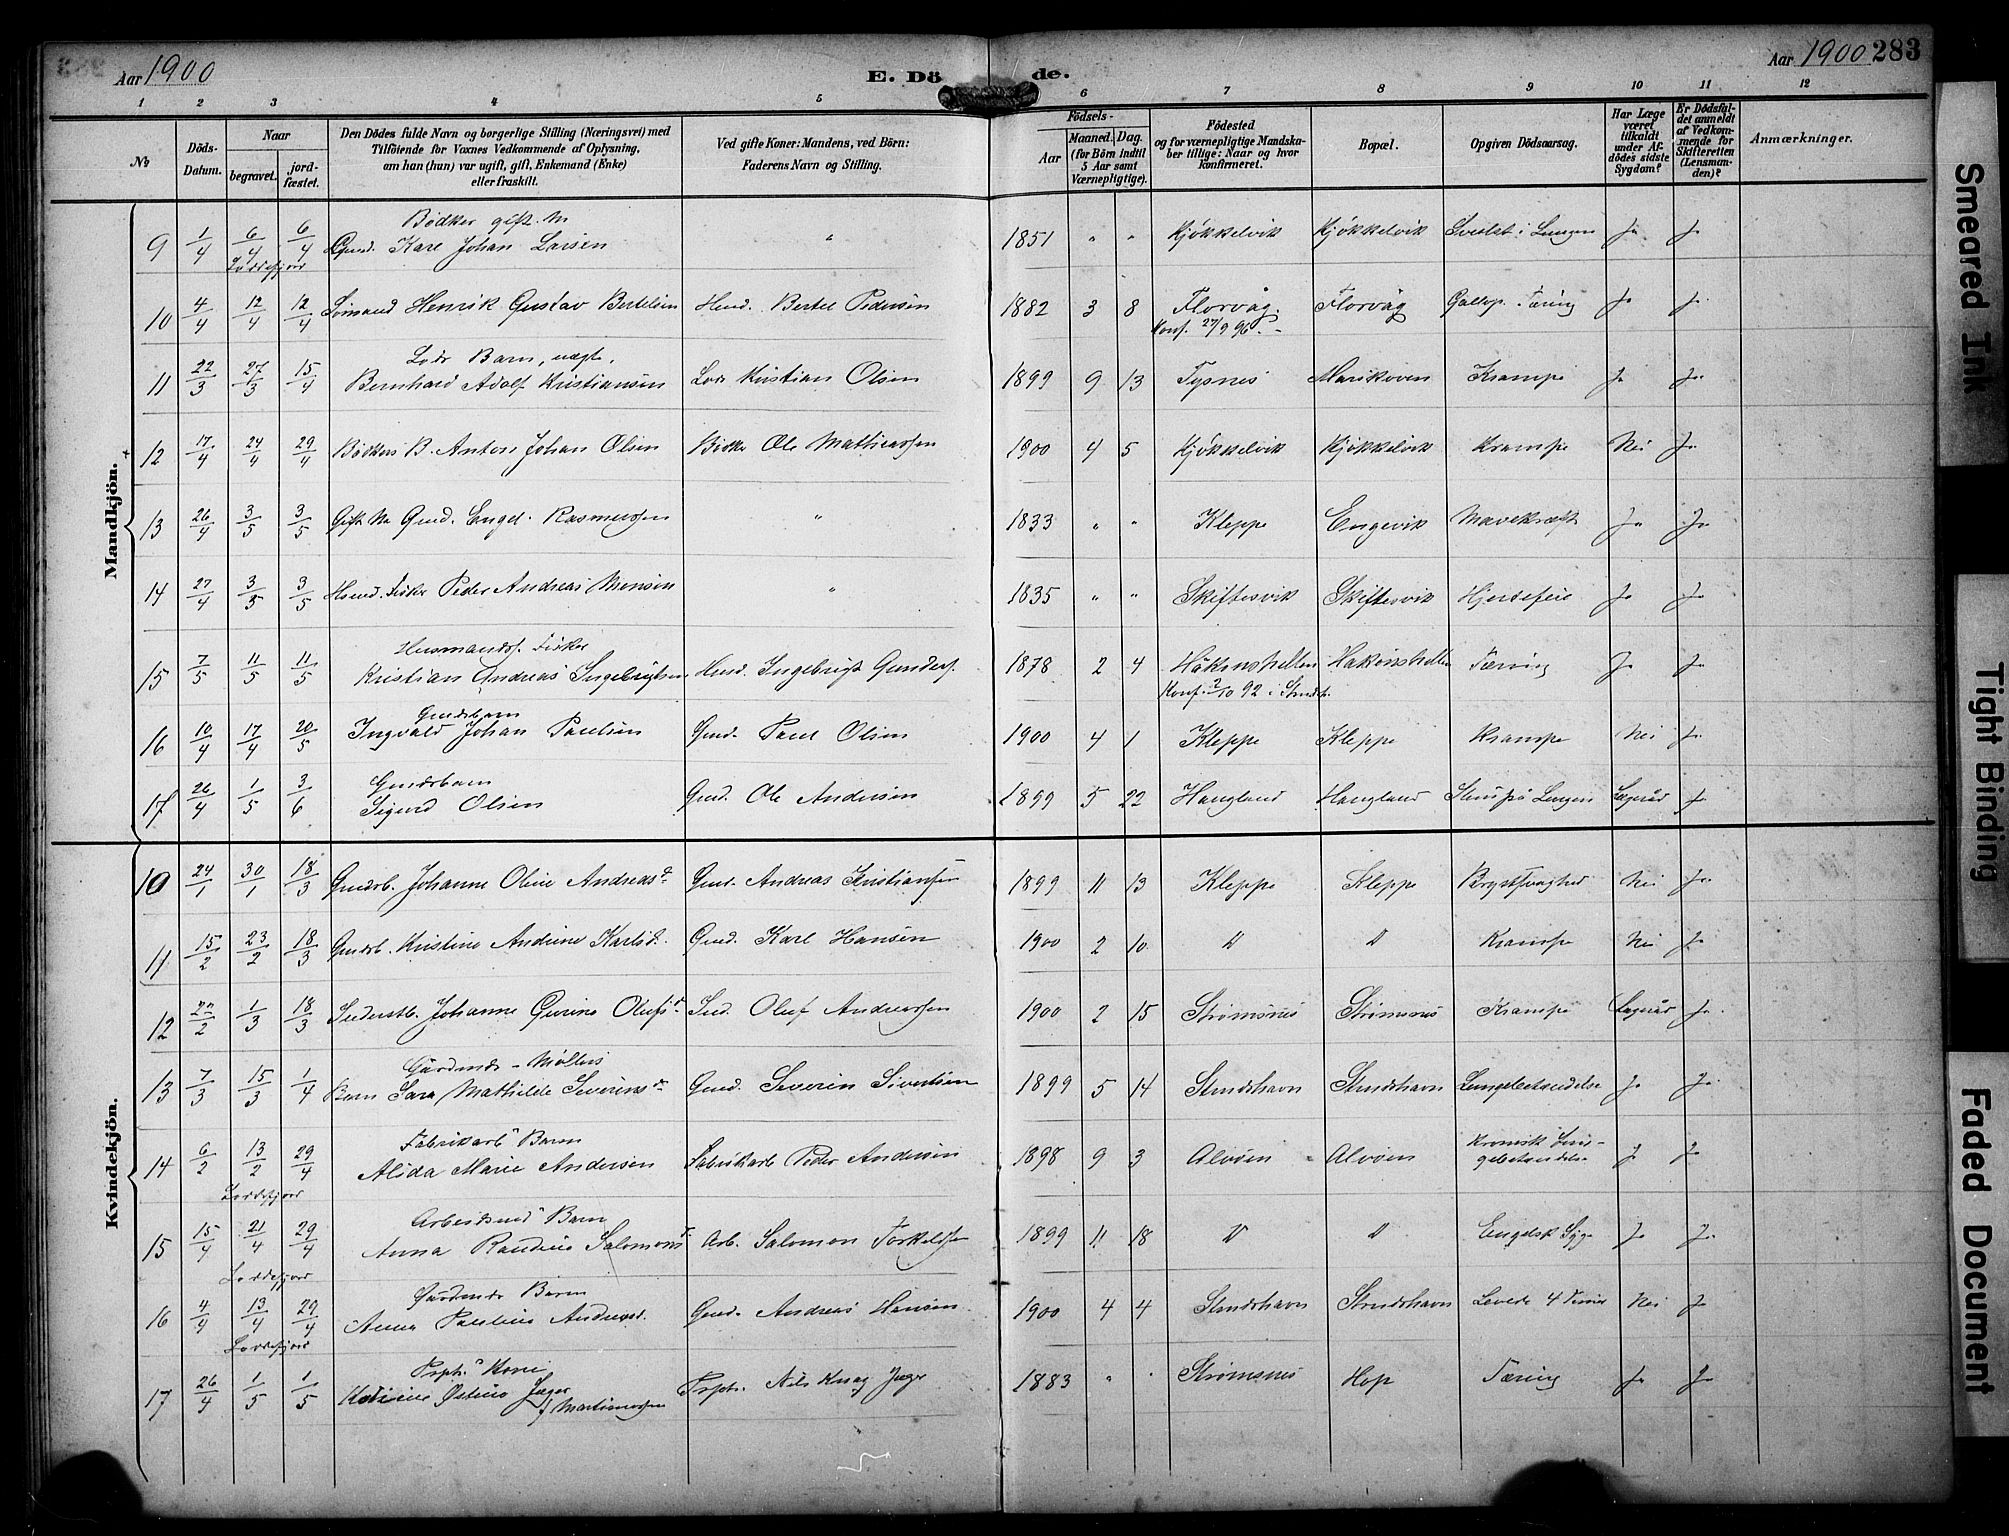 Aar 1900
E. Dö de.
Aar 1900 283
1 2 3 4 5 6 7 8 9 10 11 12
No
Döds-Datum.
Naar
begravet.
jord-fæstet.
Den Dödes fulde Navn og borgerlige Stilling (Næringsvei) med
Tilföiende for Voxnes Vedkommende af Oplysning,
om han (hun) var ugift, gift, Enkemand (Enke)
eller fraskilt.
Ved gifte Koner: Mandens, ved Börn:
Faderens Navn og Stilling.
Födsels-
Aar
Maaned. Dag.
(for Börn indtil
5 Aar samt
Værnepligtige).
Födested
og for værnepligtige Mandska-
ber tillige: Naar og hvor
konfirmeret.
Bopæl.
Opgiven Dödsaarsag.
Har Læge
været
tilkaldt
under Af-
dödes sidste
Sygdom?
Er Dödsfal-
det anmeldt
af Vedkom-
mende for
Skifteretten
(Lensman-
den)?
Anmærkninger.
Mandkjön.
Bødker gift. M
9 1/4 6/4 6/4 Gmd. Karl Johan Larsen " 1851 " " Kjøkkelvik Kjøkkelvik Svulst i Lungen Ja Ja
Loddefjord
10 4/4 12/4 12/4 Sømand Henrik Gustav Bertelsen Husmd. Bertel Pedersen 1882 3 8 Florvåg. Florvåg Gallop. Tæring Ja Ja
Konf. 27/9 96. -
Lods Barn, uægte.
11 22/3 27/3 15/4 Bernhard Adolf Kristiansen Lods Kristian Olsen 1899 9 13 Tysnes Marikoven Krampe Ja Ja
12 17/4 24/4 29/4 Bødkers B. Anton Johan Olsen Bødker Ole Mathiassen 1900 4 5 Kjøkkelvik Kjøkkelvik Krampe Nei Ja
13 26/4 3/5 3/5 Gift Ma Gmd. Engel. Rasmussen " 1833 " " Kleppe Engevik Mavekræft Ja Ja
14 27/4 3/5 3/5 Husmd. Fisker Peder Andreas Monsen " 1835 " " Skiftesvik Skiftesvik Hjertefeil Ja Ja
Husmands. Fisker
15 7/5 11/5 11/5 Kristian Andreas Ingebrigtsen Husmd. Ingebrigt Gunders. 1878 2 4 Håkonshellen Håkonshellen Tæring Ja Ja
Konf. 2/10 92 i Strudsh.
Gmdsbarn
16 10/4 17/4 20/5 Ingvald Johan Paulsen Gmd. Paul Olsen 1900 4 1 Kleppe Kleppe Krampe Nei Ja
Gmdsbarn
17 26/4 1/5 3/6 Sigurd Olsen Gmd. Ole Andersen 1899 5 22 Haugland Haugland Lungen Ja
Kvindekjön.
10 24/1 30/1 18/3 Gmdsb. Johanne Oline Andreasd. Gmd. Andreas Kristiansen 1899 11 13 Kleppe Kleppe Brystsvaghed Nei Ja
11 15/2 23/2 18/3 Gmdsb. Kristine Andrine Karlsd. Gmd. Karl Hansen 1900 2 10 " " Krampe Nei Ja
12 22/2 1/3 18/3 Johanne Gurine Olufsd. Oluf Andreassen 1900 2 15 Strømsnes Strømsnes Krampe Ja.
Gårdmds - Møllers
13 7/3 15/3 1/4 Barn Sara Mathilde Severinsd. Gmd. Severin Sivertsen 1899 5 14 Strudshavn Strudshavn Lungebetændelse Ja Ja.
Fabrikarb Barn
14 6/2 13/2 29/4 Alida Marie Andersen Fabrikarb Peder Andersen 1898 9 3 Alvøen Alvøen Kronisk Lun-
gebetændelse Ja Ja
Loddefjord
Arbeidsmd Barn
15 15/4 21/4 29/4 Anna Randine Salomonsd. Arb. Salomon Torkelsen 1899 11 18 " " Engelsk Syge Ja Ja.
Loddefjord
Gårdmds Barn
16 4/4 13/4 29/4 Anna Pauline Andreasd. Gmd. Andreas Hansen 1900 4 4 Strudshavn Strudshavn Levede 4 Timer Nei Ja
Loddefjord
Kone
17 26/4 1/5 1/5 Jæger f Martinussen Nils Krag Jæger 1883 " " Strømsnes Hop Tæring Ja Ja
Smeared Ink
Tight Binding
Faded Document